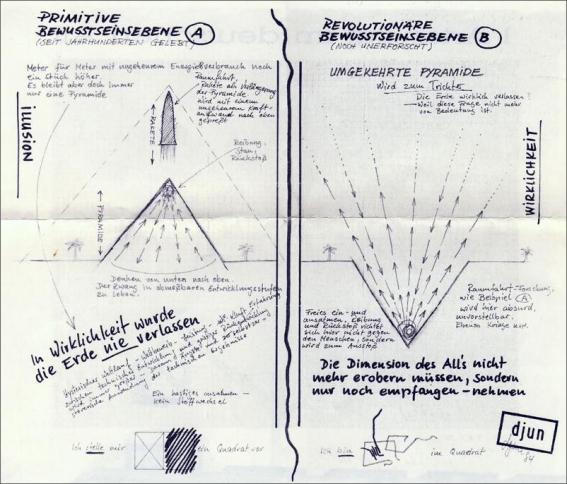 PRIMITIVE
BEWUSSTSEINSEBENE A
(SEIT JAHRHUNDERTEN GELEBT)
Meter für Meter mit ungeheurem Energieverbrauch noch
ein Stück höher.
Es bleibt aber doch immer
nur eine Pyramide
Raumfahrt,
Rakete als Verlängerung
der Pyramide
wird mit einem
ungeheurem Kraft-
aufwand nach oben
gepreßt
illusion
RAKETE
Reibung
Stau,
Rückstoß
PYRAMIDE
Denken von unten nach oben.
Der Zwang in abmeßbaren Entwicklungsstufen
zu leben.
In Wirklichkeit wurde
die Erde nie verlassen
Ein hastiges ausatmen –
kein Stoffwechsel
Ich stelle mir
ein Quadrat vor
REVOLUTIONÄRE
BEWUSSTSEINSEBENE B
(NOCH UNERFORSCHT)
UMGEKEHRTE PYRAMIDE
Wird zum Trichter
Die Erde wirklich verlassen?
Weil diese Frage nicht mehr
von Bedeutung ist.
WIRKLICHKEIT
Freies ein- und
ausatmen, Reibung
und Rückstoß richtet
sich hier nicht gegen
den Menschen, sondern
wird zum Ausstoß
Raumfahrt-Forschung,
wie Beispiel A
wird hier absurd,
unvorstellbar.
Ebenso Kriege usw.
Die Dimension des All's nicht
mehr erobern müssen, sondern
nur noch empfangen – nehmen
Ich bin
im Quadrat
djun
84